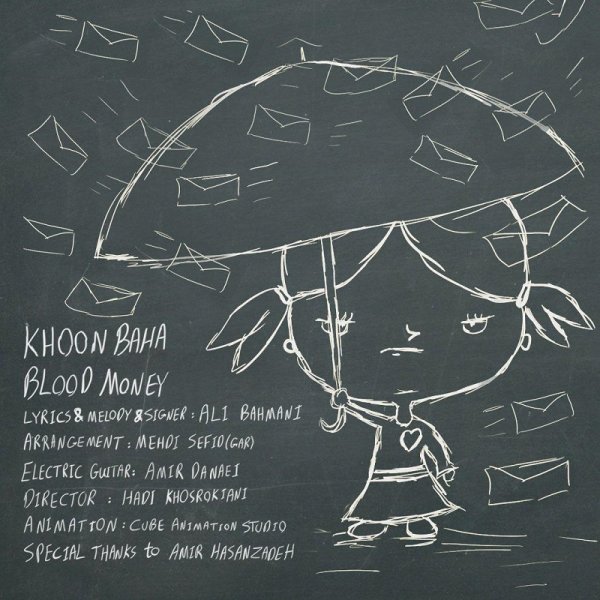 KHOON BAHA
BLOOD MONEY
LYRICS & MELODY & SIGNER : ALI BAHMANI
ARRANGEMENT : MEHDI SEFID(GAR)
ELECTRIC GUITAR: AMIR DANAEI
DIRECTOR : HADI KHOSROKIANI
ANIMATION : CUBE ANIMATION STUDIO
SPECIAL THANKS to AMIR HASANZADEH